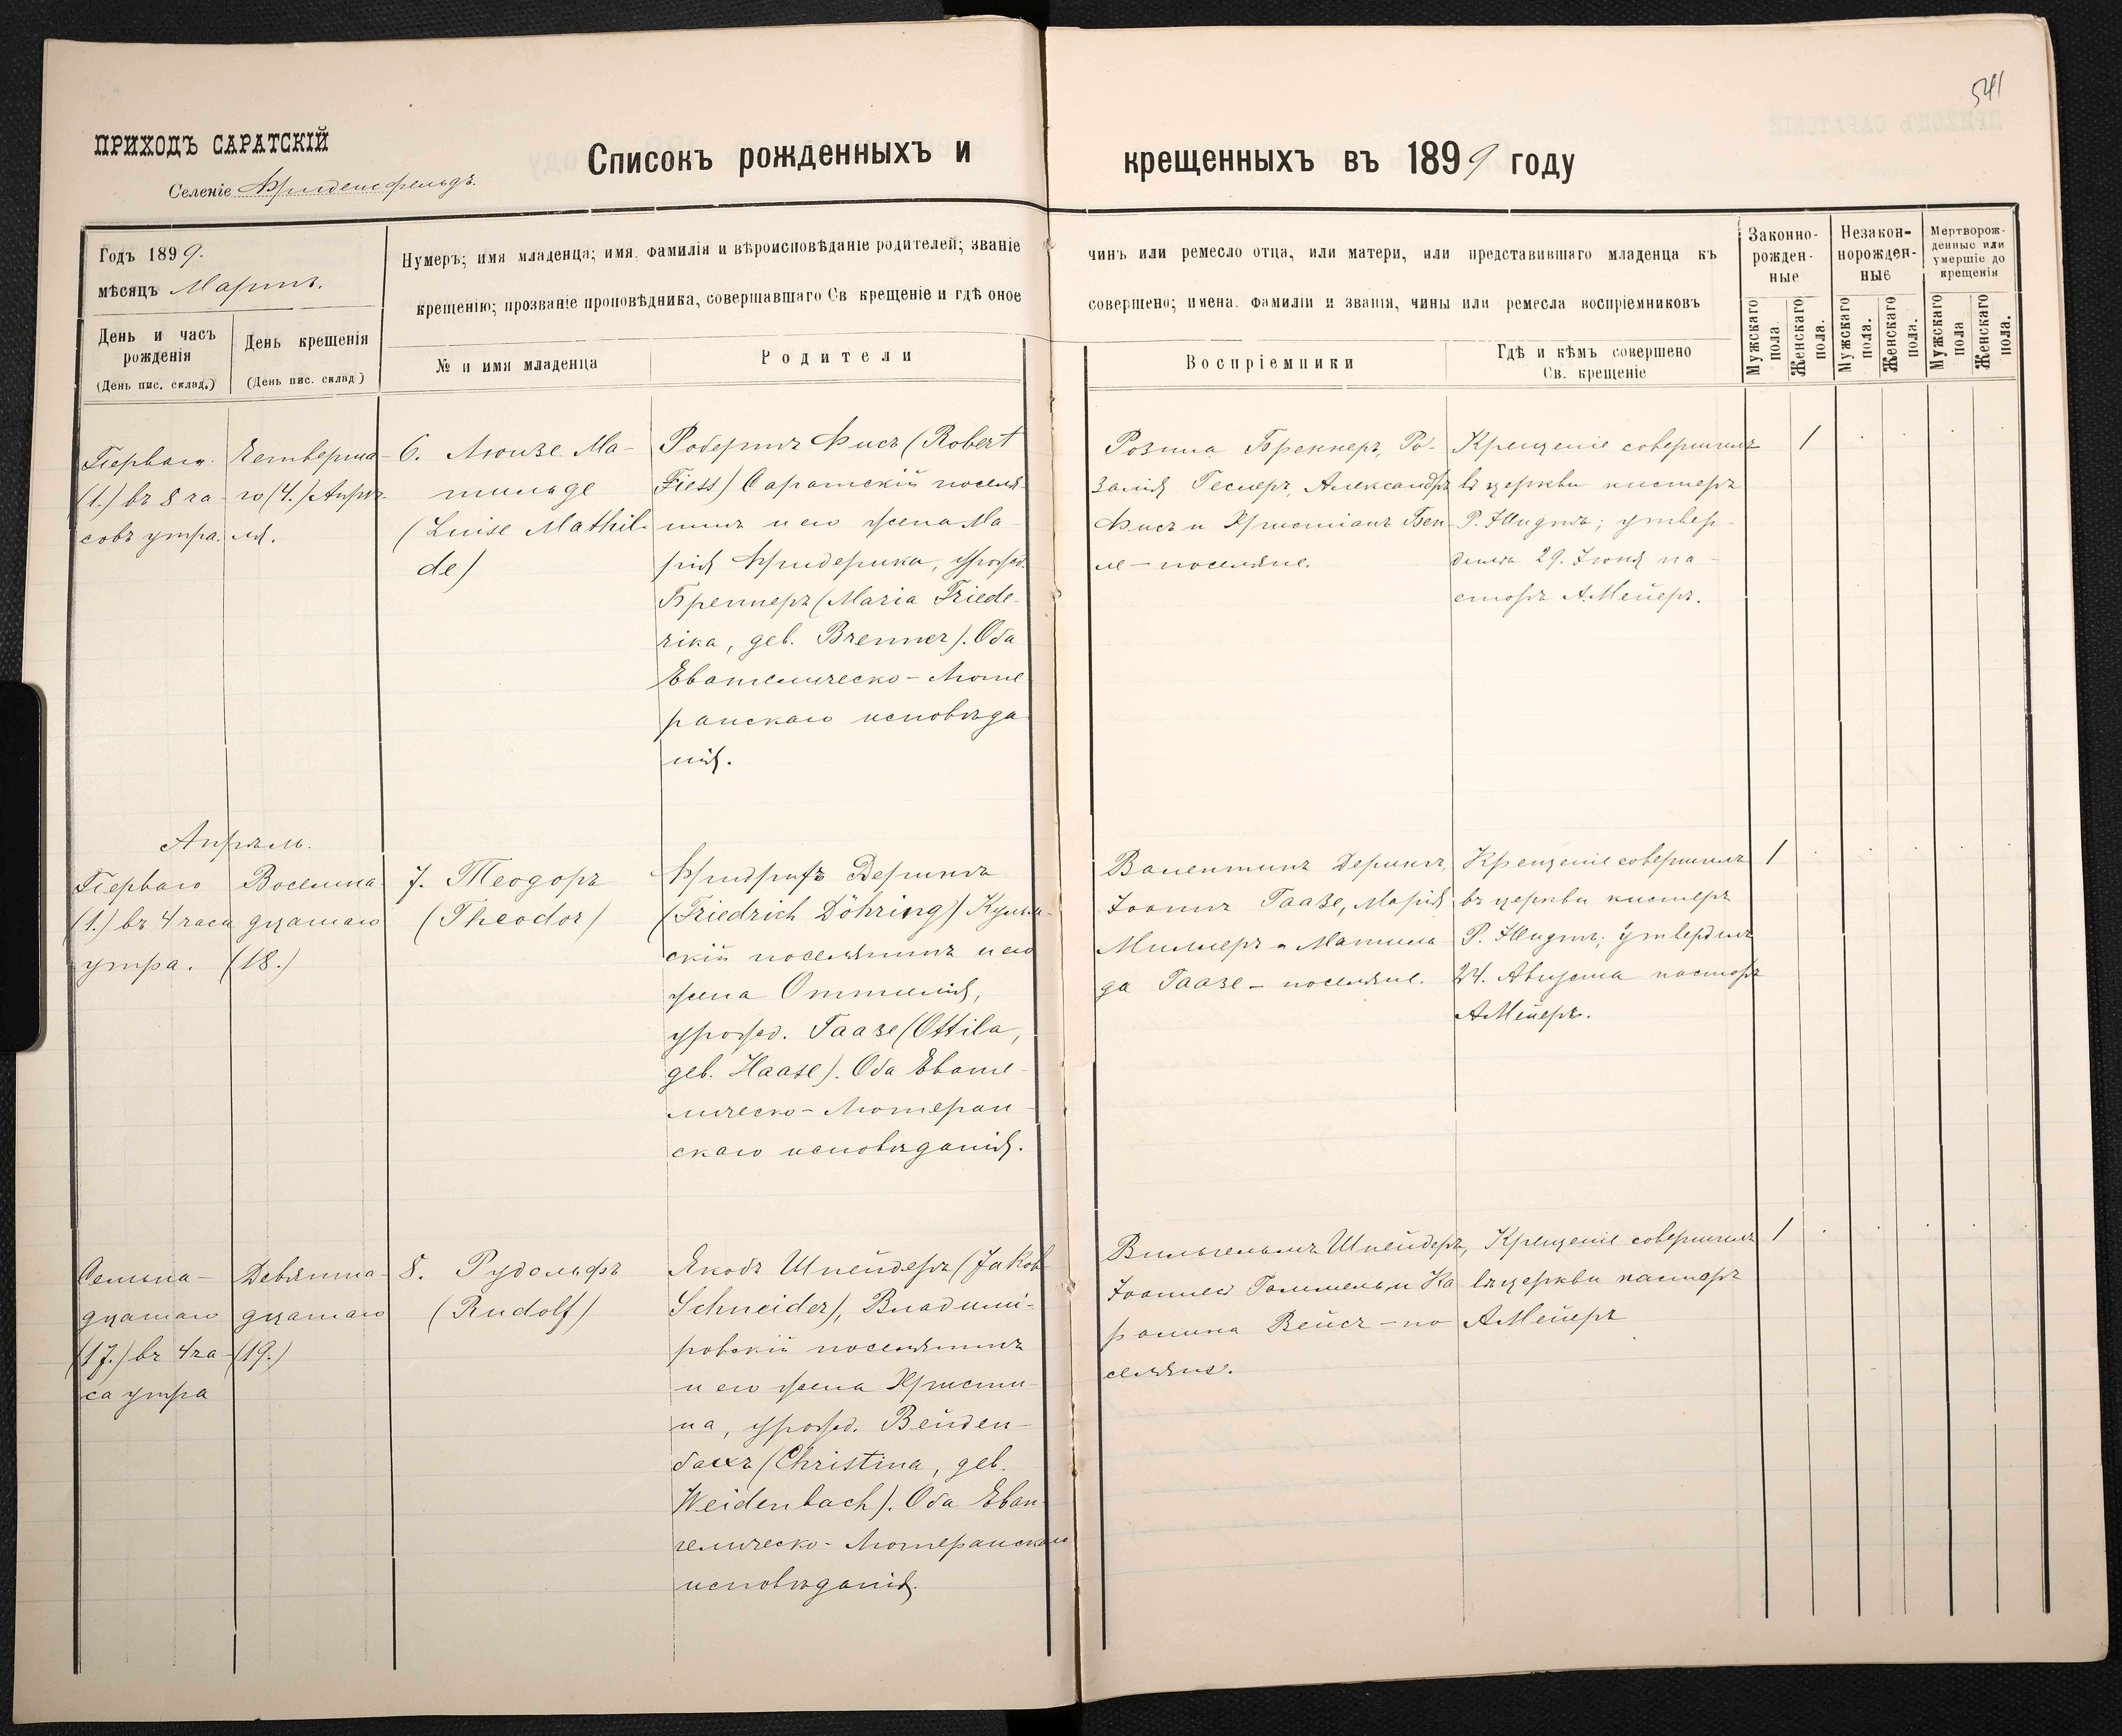 541
ПРИХОДЪ САРАТСКІЙ
Селеніе Фриденсфельдъ.
Списокъ рожденныхъ и крещенныхъ въ 1899 году
Годъ 1899.
мѣсяцъ Мартъ.
День и часъ
рожденія
(День пис. склад.)
День крещенія
(День пис. склад)
Нумеръ; имя младенца; имя, фамилія и вѣроисповѣданіе родителей; званіе
крещенію; прозваніе проповѣдника, совершавшаго Св крещеніе и гдѣ оное
№ и имя младенца
Родители
чинъ или ремесло отца, или матери, или представившаго младенца къ
совершено; имена, фамиліи и званія, чины или ремесла воспріемниковъ
Воспріемники
Гдѣ и кѣмъ совершено
Св. крещеніе
Законно-
рожден-
ные
Незакон-
норожден-
ные
Мертворож-
денные или
умершіе до
крещенія
Мужскаго
пола.
Женскаго
пола.
Мужскаго
пола.
Женскаго
пола.
Мужскаго
пола
Женскаго
пола.
Перваго
(1.) въ 8 ча-
совъ утра.
Четверта-
го (4.) Апрѣ-
ля.
6. Люизе Ма-
тильде
(Luise Mathil-
de)
Робертъ Фисъ (Robert
Fiess) Саратскій поселя-
нинъ и его жена Ма-
рія Фридерика, урожд.
Бреннеръ (Maria Friede-
rika, geb. Brenner). Оба
Евангелическо-Люте
ранскаго исповѣда
нія.
Розина Бреннеръ, Ро-
залія Геслеръ, Александръ
Фисъ и Христіанъ Бен-
ле - поселяне.
Крещеніе совершилъ
въ церкви кистеръ
Р. Шидтъ; утвер-
дилъ 29. Іюня па-
сторъ А.Мейеръ.
1
Апрѣль.
Перваго
(1.) въ 4 часа
утра.
Восемна-
дцатаго
(18.)
7. Теодоръ
(Theodor)
Фридрихъ Дерингъ
(Friedrich Döhring) Кульм-
скій поселянинъ и его
жена Оттилія,
урожд. Гаазе (Ottila,
geb. Haase). Оба Еванге-
лическо-Лютеран-
скаго исповѣданія.
Валентинъ Дерингъ,
Іоаннъ Гаазе, Марія
Миллеръ и Матиль-
да Гаазе - поселяне.
Крещеніе совершилъ
въ церкви кистеръ
Р. Шидтъ; утвердилъ
24. Августа пасторъ
А.Мейеръ.
1
Семна-
дцатаго
(17.) въ 4 ча-
са утра
Девятна-
дцатаго
(19.)
8. Рудольфъ
(Rudolf)
Якобъ Шнейдеръ (Jakob
Schneider), Владими-
ровскій поселянинъ
и его жена Христи-
на, урожд. Вейден-
бахъ (Christina, geb.
Weidenbach). Оба Еван-
гелическо-Лютеранскаго
исповѣданія.
Вильгельмъ Шнейдеръ,
Іоаннес Гоммель и Ка
ролина Вейсъ - по
селяне.
Крещеніе совершилъ
въ церкви пасторъ
А.Мейеръ
1